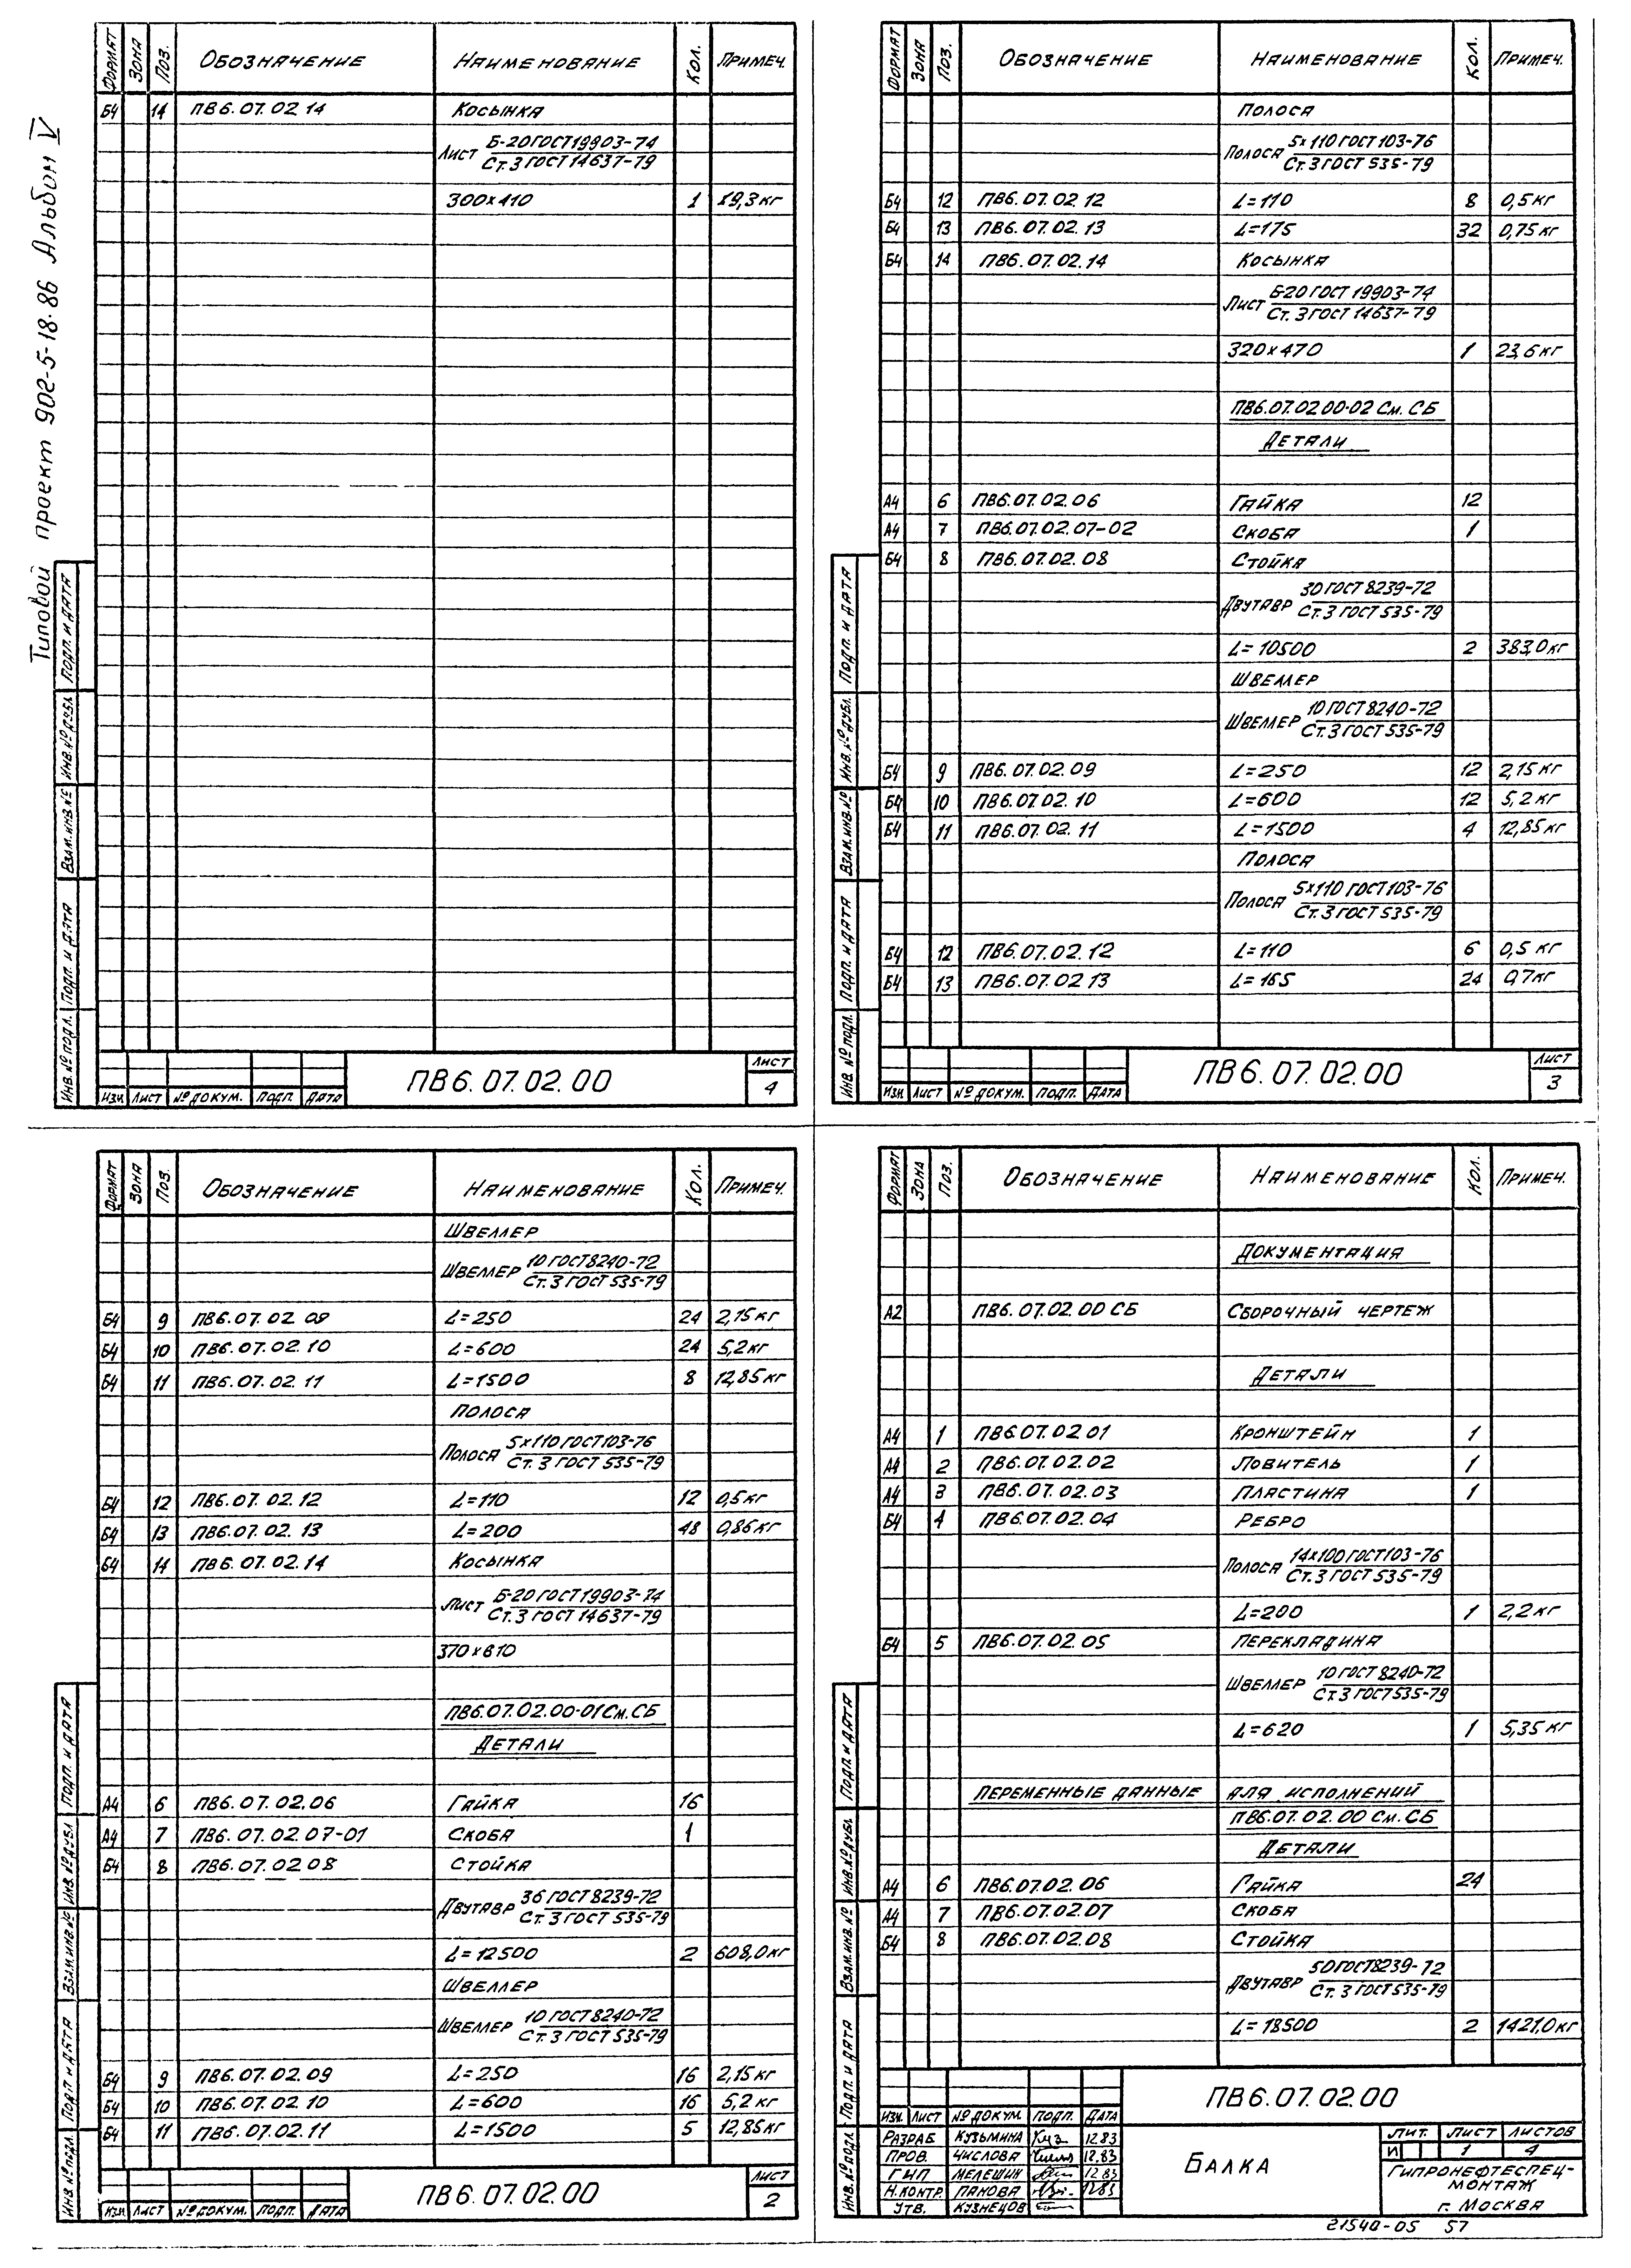 Типовой проект 902-5-18.86 Альбом V
Формат Зона Поз. Обозначение Наименование Кол. Примеч.
Б4 14 ПВ6.07.02 14 Косынка
Лист Б-20 ГОСТ 19903-74
Ст.3 ГОСТ 14637-79
300х410 1 19,3 кг
Инв. № подл. Подп. и дата Взам. инв. № Инв. № дубл. Подп. и дата
Изм. Лист № докум. Подп. Дата
ПВ6.07.02.00
Лист
4
Формат Зона Поз. Обозначение Наименование Кол. Примеч.
Полоса
Полоса 5х110 ГОСТ 103-76
Ст.3 ГОСТ 535-79
Б4 12 ПВ6.07.02 12 L=110 8 0,5 кг
Б4 13 ПВ6.07.02.13 L=175 32 0,75 кг
Б4 14 ПВ6.07.02.14 Косынка
Лист Б-20 ГОСТ 19903-74
Ст. 3 ГОСТ 14637-79
320х470 1 23,6 кг
ПВ6.07.02 00-02 См. СБ
Детали
А4 6 ПВ6.07.02.06 Гайка 12
А4 7 ПВ6.07.02.07-02 Скоба 1
Б4 8 ПВ6.07.02.08 Стойка
Двутавр 30 ГОСТ 8239-72
Ст.3 ГОСТ 535-79
L=10500 2 383,0 кг
Швеллер
Швеллер 10 ГОСТ 8240-72
Ст.3 ГОСТ 535-79
Б4 9 ПВ6.07.02.09 L=250 12 2,15 кг
Б4 10 ПВ6.07.02.10 L=600 12 5,2 кг
Б4 11 ПВ6.07.02.11 L=1500 4 12,85 кг
Полоса
Полоса 5х110 ГОСТ 103-76
Ст.3 ГОСТ 535-79
Б4 12 ПВ6.07.02.12 L=110 6 0,5 кг
Б4 13 ПВ6.07.02 13 L=165 24 0,7 кг
Инв. № подл. Подп. и дата Взам. инв. № Инв. № дубл. Подп. и дата
Изм. Лист № докум. Подп. Дата
ПВ6.07.02.00
Лист
3
Формат Зона Поз. Обозначение Наименование Кол. Примеч.
Швеллер
Швеллер 10 ГОСТ 8240-72
Ст.3 ГОСТ 535-79
Б4 9 ПВ6.07.02 09 L=250 24 2,15 кг
Б4 10 ПВ6.07.02.10 L=600 24 5,2 кг
Б4 11 ПВ6.07.02.11 L=1500 8 12,85 кг
Полоса
Полоса 5х110 ГОСТ 103-76
Ст.3 ГОСТ 535-79
Б4 12 ПВ6.07.02.12 L=110 12 0,5 кг
Б4 13 ПВ6.07.02.13 L=200 48 0,86 кг
Б4 14 ПВ6.07.02.14 Косынка
Лист Б-20 ГОСТ 19903-74
Ст.3 ГОСТ 14637-79
370х610
ПВ6.07.02.00-01 См. СБ
Детали
А4 6 ПВ6.07.02.06 Гайка 16
А4 7 ПВ6.07.02 07-01 Скоба 1
Б4 8 ПВ6.07.02 08 Стойка
Двутавр 36 ГОСТ 8239-72
Ст.3 ГОСТ 535-79
L=12500 2 608,0 кг
Швеллер
Швеллер 10 ГОСТ 8240-72
Ст.3 ГОСТ 535-79
Б4 9 ПВ6.07.02.09 L=250 16 2,15 кг
Б4 10 ПВ6.07.02 10 L=600 16 5,2 кг
Б4 11 ПВ6.07.02.11 L=1500 5 12,85 кг
Инв. № подл. Подп. и дата Взам. инв. № Инв. № дубл. Подп. и дата
Изм. Лист № докум. Подп. Дата
ПВ6.07.02.00
Лист
2
Формат Зона Поз. Обозначение Наименование Кол. Примеч.
Документация
А2 ПВ6.07.02.00 СБ Сборочный чертеж
Детали
А4 1 ПВ6.07.02 01 Кронштейн 1
А4 2 ПВ6.07.02.02 Ловитель 1
А4 3 ПВ6.07.02.03 Пластина 1
Б4 4 ПВ6.07.02.04 Ребро
Полоса 14х100 ГОСТ 103-76
Ст.3 ГОСТ 535-79
L=200 1 2,2 кг
Б4 5 ПВ6.07.02.05 Перекладина
Швеллер 10 ГОСТ 8240-72
Ст.3 ГОСТ 535-79
L=620 1 5,35 кг
Переменные данные для исполнений
ПВ6.07.02.00 См. СБ
Детали
А4 6 ПВ6.07.02.06 Гайка 24
А4 7 ПВ6.07.02.07 Скоба
Б4 8 ПВ6.07.02.08 Стойка
Двутавр 50 ГОСТ 8239-72
Ст.3 ГОСТ 535-79
L=18500 2 1421,0 кг
Инв. № подл. Подп. и дата Взам. инв. № Инв. № дубл. Подп. и дата
Изм. Лист № докум. Подп. Дата
ПВ6.07.02.00
Разраб Кузьмина 12.83
Пров. Числова 12.83
ГИП Мелешин 12.83
Н.контр. Панова 12.83
Утв. Кузнецов
Балка
Лит. Лист Листов
И 1 4
Гипронефтеспец-
монтаж
г. Москва
21540-05 57